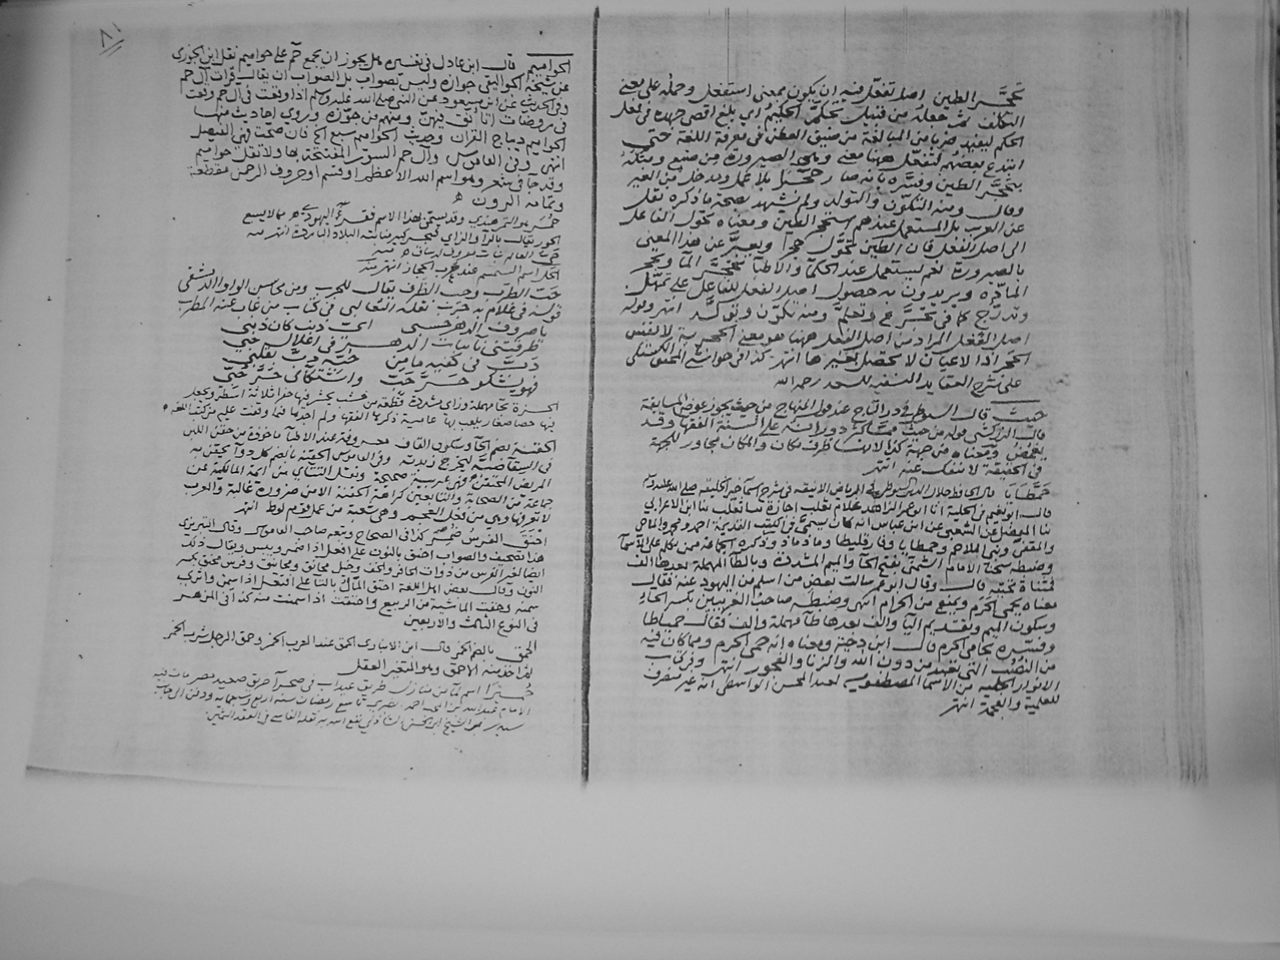 تحجّر الطين اصل تفعّل فيه ان يكون بمعنى استفعل وحمله على معنى
التكلف ثم جعله من قبيل تحلّم الحليم اي بلغ اقصى جهده في فعل
الحلم ليفيد ضربا من المبالغة من ضيق العطن في معرفة اللغة حتى
ابتدع بعضهم لتفعّل ههنا معنى وهي الصيرورة من صنع ومثّله
بتحجّر الطين وفسّره بانه صار حجرا بلا عمل ومدخل من الغير
وقال ومنه التكوّن والتولد ولم نشهد بصحة ما ذكره نقل
عن العرب بل المستعمل عندهم استحجر الطين ومعناه تحول الفاعل
الى اصل الفعل فان الطين تحوّل حجرا ويعبرّ عن هذا المعنى
بالصيرورة نعم يستعمل عند الحكما والاطبا تحجّر الما وتحجر
المادّة ويريدون به حصول اصل الفعل للفاعل على تمهّل
وتدرّج كما في تجرّع وتعلّم ومنه تكوّن وتولّد انتهى وقوله
اصل الفعل المراد من اصل الفعل ههنا هو معنى الحجرية لا نفس
الحجر اذ الاعيان لا تحصل لغيرها انتهى كذا في حواشي المحقق الكستلي
على شرح العقايد النسفيه للسعد رحمه الله
حيث قال السيوطي في در التاج عند قول المنهاج من حيث يجوز عوض المسابقة
قال الزركشي قوله من حيث دورانه على السنة الفقها وقد
يغمض ومعناه من جهة كذا لانها ظرف مكان والمكان مجاور للجهة
في الحقيقة لا تنفك عنه انتهى
حمطايا قال الحافظ جلال الدين السيوطي في الرياض الانيقه في شرح اسما خير الخليقه صلى الله عليه وسلم
قال ابو نعيم في الحلية انا ابو عمر الزاهد غلام ثعلب اجازة ثنا ثعلب ثنا ابن الاعرابي
ثنا المفضل عن الشعبي عن ابن عباس انه كان يسمى في الكتب القديمة احمد ومحمد والماحي
والمقفى ونبي الملاحم وحمطايا وفارقليطا وماذ ماذ وذكره الجماعة ممن تكلم على الاسما
وضبطه شيخنا الامام الشمني بفتح الحا والميم المشددة وبالطا المهملة بعدها الف
فمثناة تحتية قال وقال ابو عمر سالت بعض من اسلم من اليهود عنه فقال
معناه يحمي الحرم ويمنع من الحرام انتهى وضبطه صاحب الغريبين بكسر الحاء
وسكون الميم وتقديم اليا والف بعدها طا مهملة والف فقال حمياطا
وفسّره بحامي الحرم قال ابن دحية ومعناه انه حمى الحرم ومما كان فيه
من النصب التي تعبد من دون الله والزنا والفجور انتهى وفي كتاب
الانوار الجليه من الاسما المصطفويه لعبد المحسن الواسطي انه غير منصرف
للعلمية والعجمة انتهى
الحواميم قال ابن عادل في تفسيره هل يجوز ان يجمع حم على حواميم نقل ابن الجوزي
عن شيخه الجواليقي جوازه وليس بصواب بل الصواب ان يقال قرات آل حم
وفي الحديث عن ابن مسعود عن النبي صلى الله عليه وسلم اذا وقعت في آل حم وقعت
في روضات اتانق فيهنّ ومنهم من جوّزه وروي احاديث منها
الحواميم ديباج القران وحديث الحواميم سبع الخ فان صحت فهي الفيصل
انتهى وفي القاموس وآل حم السور المفتتحة بها ولا تقل حواميم
وقد جا في شعر وهو اسم الله الاعظم او قسم او حروف الرحمن مقطعة
وتمامه الرون
حُمَر هو التمر هندي وقد سمي بهذا الاسم
الحور يقال بالرا والزاي
الحل اسم السمسم عند عرب الحجاز انتهى منه
خبّ الطرب وحب الظرف يقال للجرب ومن محاسن الواوا الدمشقي
قوله في غلام به جرب نقله الثعالبي في كتاب من غاب عنه المطرب
يا صروف الدهر حسبي اي ذنب كان ذنبي
طرقتني نايبات الدهر في
دبّ في كفيه ما من حبّه دبّ بقلبي
فهو يشكو حرّ حبّ واشتكائي حرّ حبّي
الحزة بحا مهملة وزاي مشددة قطعة من خشب يحفر فيها حفر ثلاثة اسطر ويجعل
فيها حصا صغار يلعب بها عامية ذكرها الفقها ولم اجدها فيما وقفت عليه من كتب اللغه
الحقنة بضم الحا وسكون القاف معروفة عند الاطبا ماخوذة من حقن اللبن
في السقا صبّه ليخرج زبدته وفي القاموس الحقنة بالضم كل دوا يحقن به
المريض المحتقن وهي عربية صحيحة ونقل التتاي من ايمة المالكية عن
جماعة من الصحابة والتابعين كراهة الحقنة الا من ضرورة غالبة والعرب
لا تعرفها وهي من فعل العجم وهي شعبة من عمل قوم لوط انتهى
احتق الفرس ضمر كذا في الصحاح وتبعه صاحب القاموس وقال التبريزي
هذا تصحيف والصواب احنق بالنون على افعل اذا ضمر ويبس ويقال ذلك
ايضا لغير الفرس من ذوات الحافر والخف وخيل محانق ومحانيق وفرس محنق بكسر
النون وقال بعض اهل اللغة احتق المال بالتا على افتعل اذا سمن واثرى
سمنه وحقت الماشية من الربيع واحتقت اذا سمنت منه كذا في المزهر
في النوع الثالث والاربعين
الحمق بالضم الخمر قال ابن الانباري الحمق عند العرب الخمر وحمق الرجل شرب الخمر
لذا خذ منه الاحمق وهو المتغير العقل
حُميثرا اسم لما من منازل طريق عيذاب في صحرا طريق صعيد مصر مات فيه
الامام
سيدي الشيخ ابو الحسن الشاذلي نفع الله به نقله الفاسي في العقد الثمين